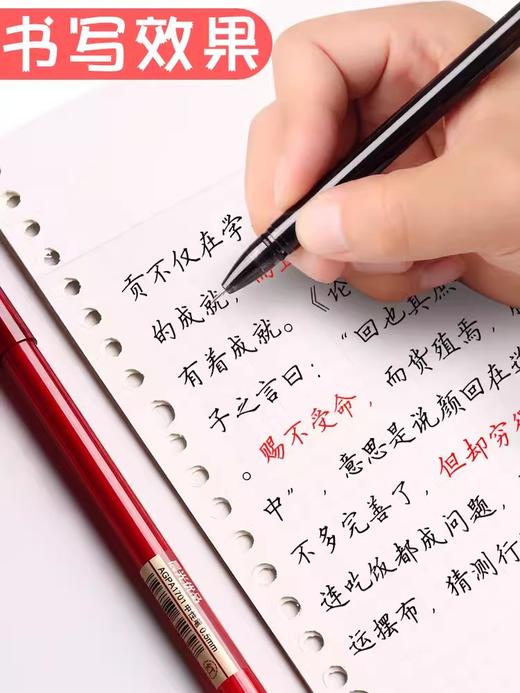 书写效果
贡不仅在学
的成就，而且
有着成就。《论
子之言曰：“回也其庶
。赐不受命，而货殖焉，
中”，意思是说颜回在
不多完善了，但却穷
连吃饭都成问题，
运摆布，猜测行
晨光优品
AGPA1701 中性笔 0.5mm
红